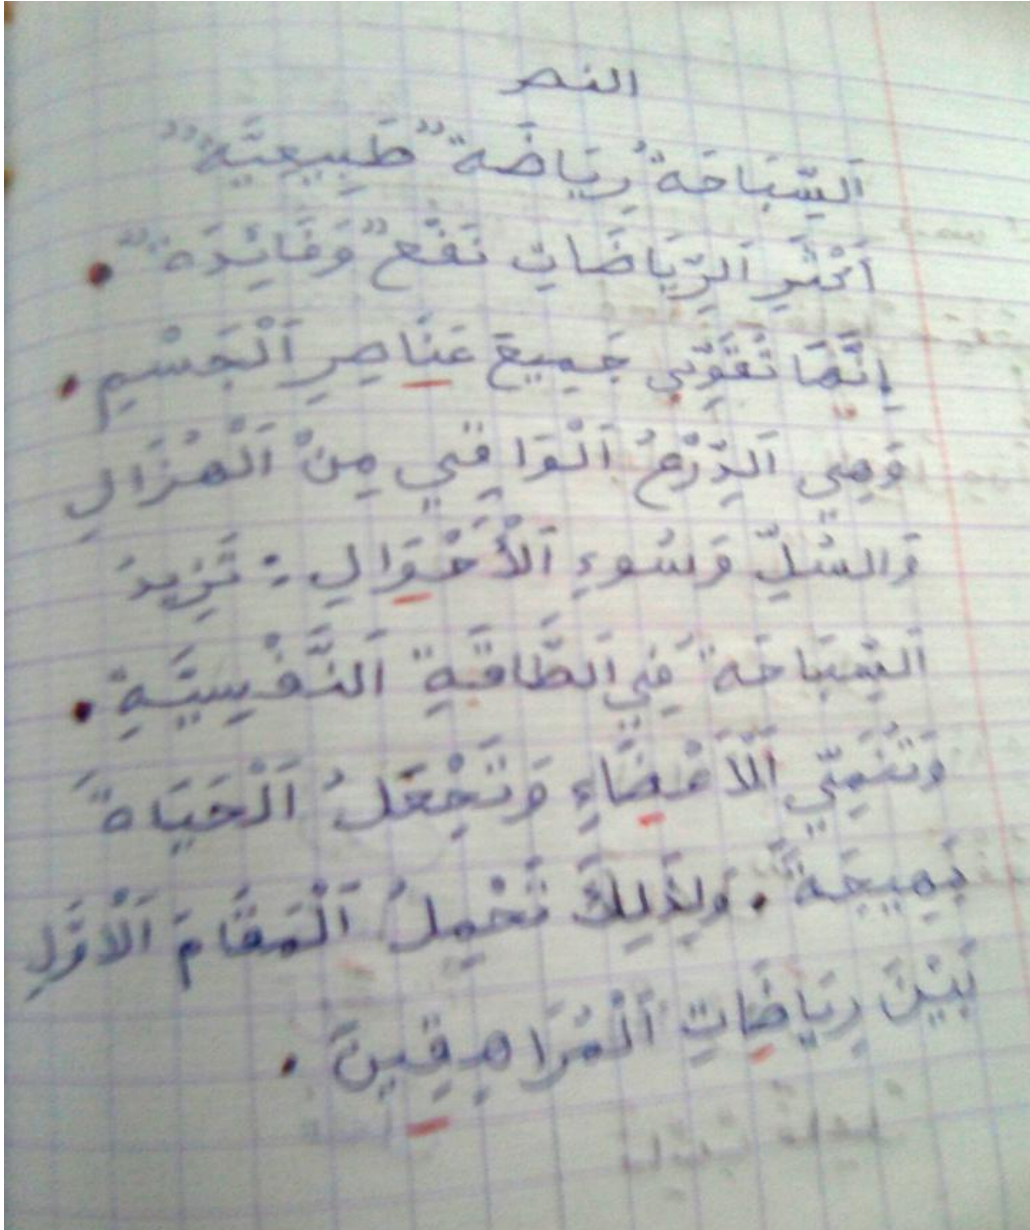 النص
اَلسِّبَاحَةُ رِيَاضَةٌ طَبِيعِيَّةٌ
اَكْثَرِ اَلرِّيَاضَاتِ نَفْعٌ وَفَائِدَةٌ.
اِنَّهَا تُقَوِّي جَمِيعَ عَنَاصِرِ اَلْجَسْمِ.
وَهِي اَلدِّرْعُ اَلْوَاقِي مِنْ اَلْهُزَالِ
وَالسُّلِّ وَسُوءِ اَلْأَحْوَالِ: تَزِيدُ
اَلسِّبَاحَةُ فِي اَلطَّاقَةِ اَلنَّفْسِيَّةِ.
وَتُنَمِّي اَلْأَعْضَاءِ وَتَجْعَلُ اَلْحَيَاةَ
بَهِيجَةً. وَلِذَلِكَ تَحْمِلُ اَلْمَقَامَ اَلْأَوَّلِ
بَيْنَ رِيَاضَاتِ اَلْمُرَاهِقِينَ.